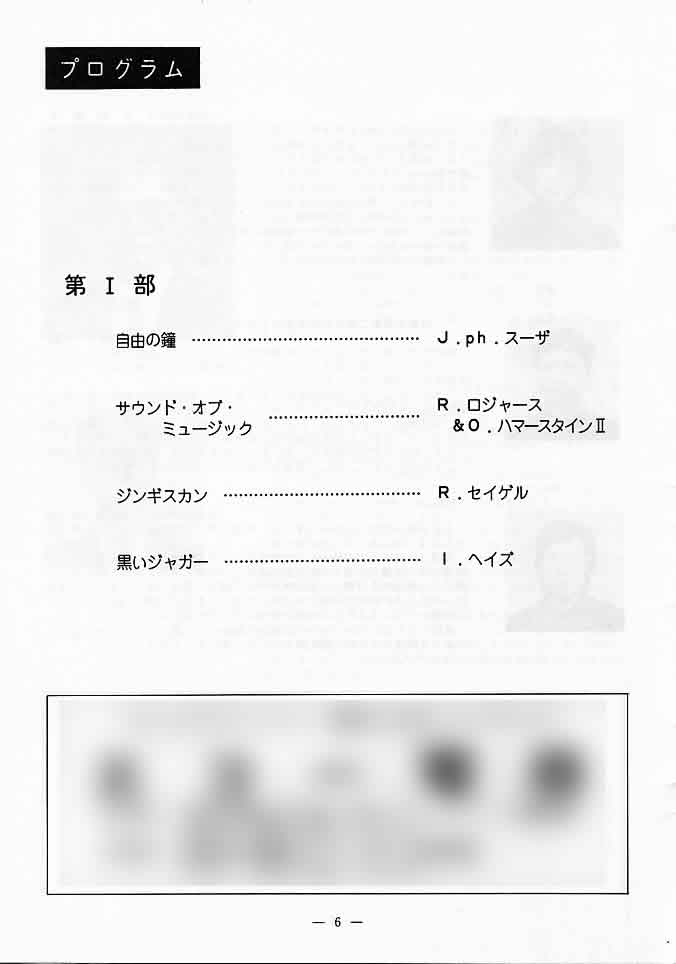 プログラム
第 I 部
自由の鐘 ………………………………… J．ph．スーザ
サウンド・オブ・
ミュージック ………………………… R．ロジャース
&O．ハマースタインⅡ
ジンギスカン ……………………………… R．セイゲル
黒いジャガー ……………………………… I．ヘイズ
— 6 —